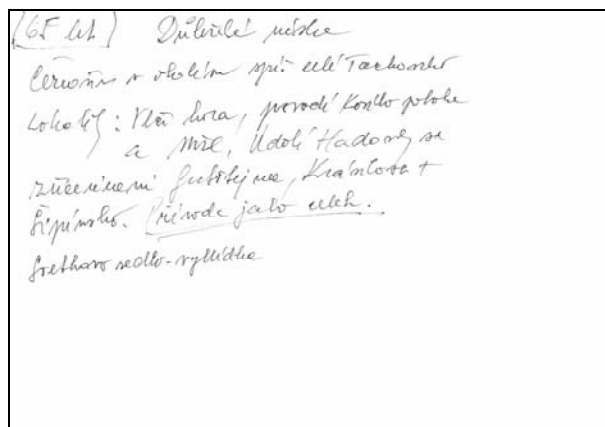 [65 let] Důležité místa
Černošín s okolím spíš celé Tachovsko
Lokality: Vlčí hora, povodí Kosího potoka
a Mže, Údolí Hadovky se
zříceninami Gutštejna, Krasíkova +
Šipínsko. Příroda jako celek.
Goethovo sedlo - vyhlídka